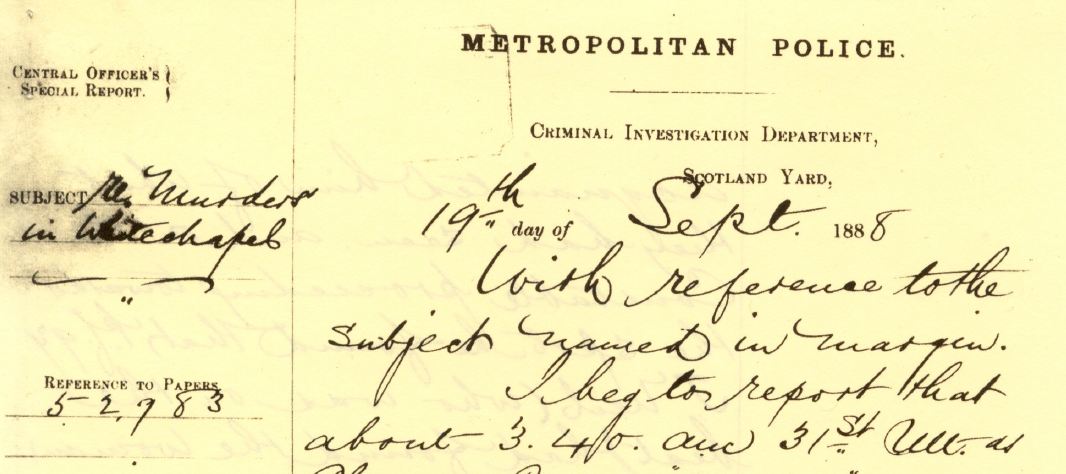 METROPOLITAN POLICE.
CENTRAL OFFICER'S
SPECIAL REPORT.
CRIMINAL INVESTIGATION DEPARTMENT,
SCOTLAND YARD,
SUBJECT re Murders
in Whitechapel
19th day of Sept. 1888
With reference to the
subject named in margin.
I beg to report that
REFERENCE TO PAPERS
52983
about 3.40. am 31st Ult. as